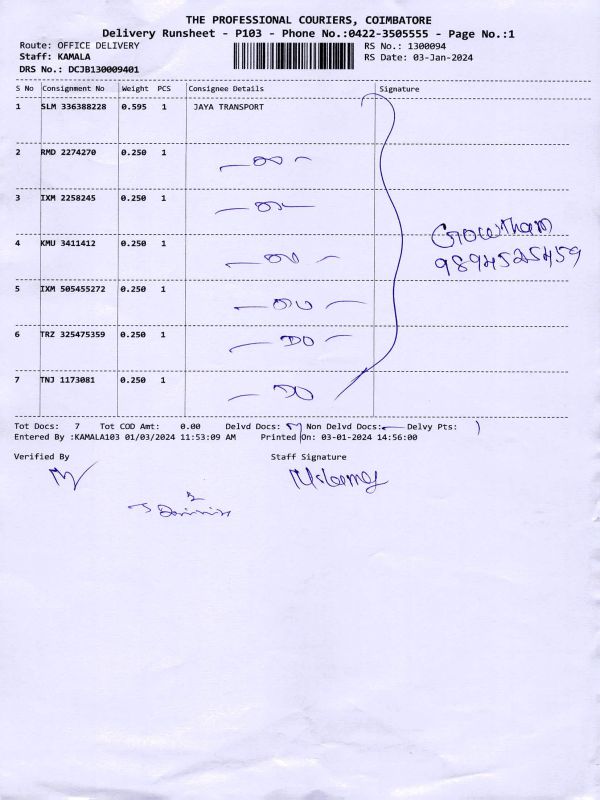 THE PROFESSIONAL COURIERS, COIMBATORE
Delivery Runsheet - P103 - Phone No.:0422-3505555 - Page No.:1
Route: OFFICE DELIVERY RS No.: 1300094
Staff: KAMALA RS Date: 03-Jan-2024
DRS No.: DCJB130009401
S No Consignment No Weight PCS Consignee Details Signature
1 SLM 336388228 0.595 1 JAYA TRANSPORT
2 RMD 2274270 0.250 1
3 IXM 2258245 0.250 1
Gowtham
4 KMU 3411412 0.250 1
9894525459
5 IXM 505455272 0.250 1
6 TRZ 325475359 0.250 1 DO
7 TNJ 1173081 0.250 1 DO
Tot Docs: 7 Tot COD Amt: 0.00 Delvd Docs: Non Delvd Docs: Delvy Pts:
Entered By :KAMALA103 01/03/2024 11:53:09 AM Printed On: 03-01-2024 14:56:00
Verified By Staff Signature